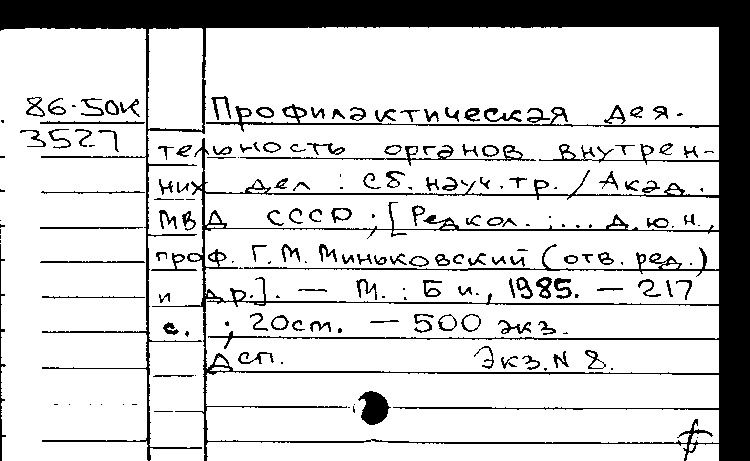 86-50к Профилактическая дея-
3527 тельность органов внутрен-
них дел : сб. науч. тр. / Акад.
МВД СССР ; [Редкол. : ... д. ю. н.,
проф. Г. М. Миньковский (отв. ред.)
и др.]. — М. : Б и., 1985. — 217
с. ; 20 см. — 500 экз.
Дсп. Экз. N 8.